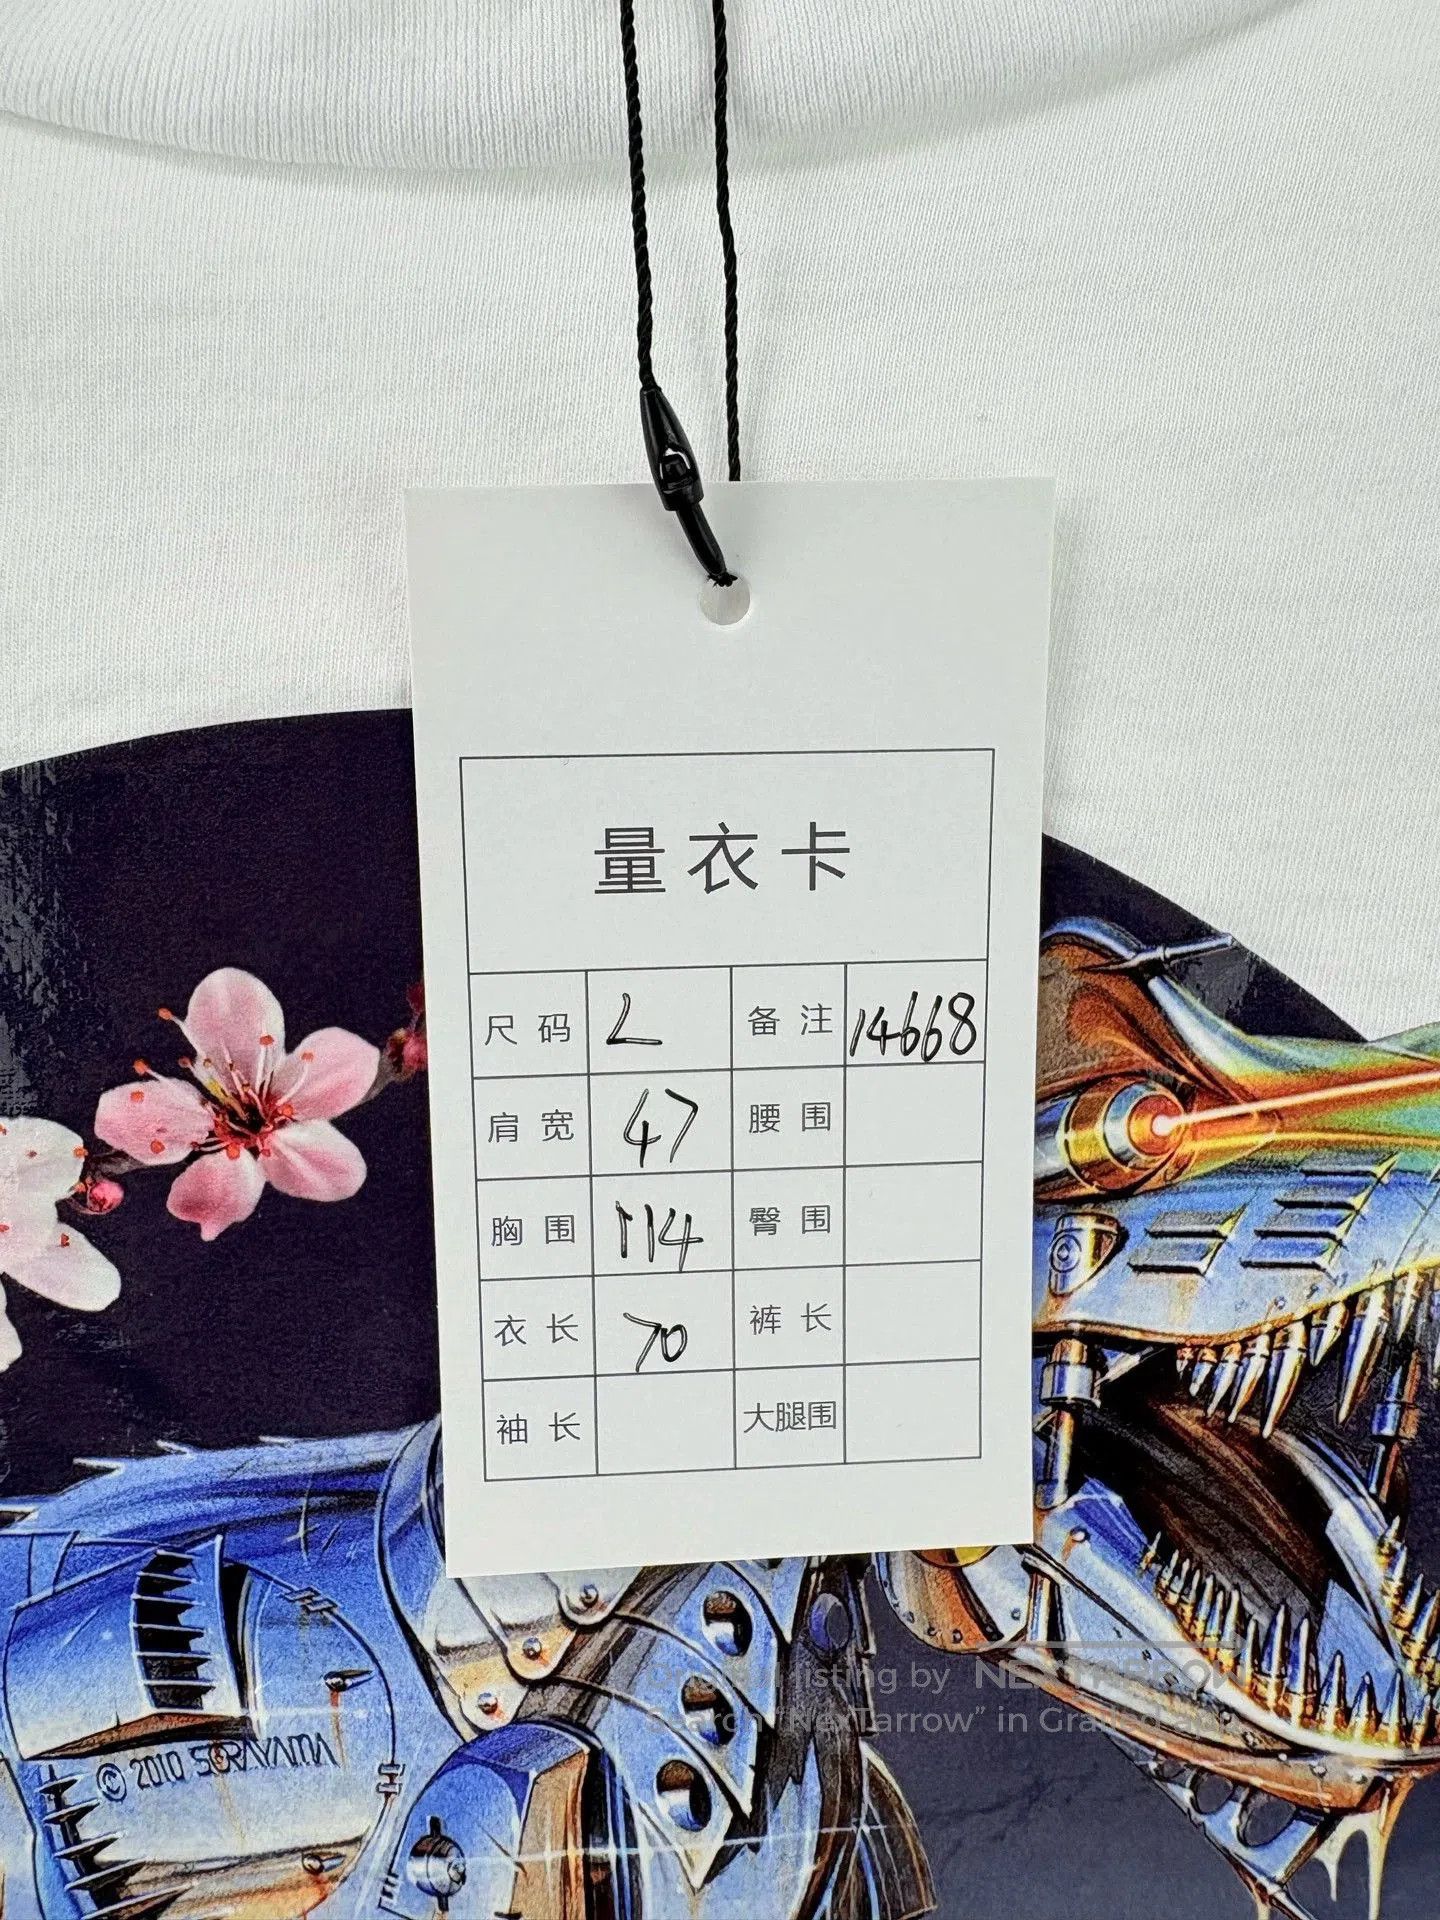 量衣卡
尺码 L 备注 14668
肩宽 47 腰围
胸围 114 臀围
衣长 70 裤长
袖长 大腿围
Original listing by NEXTARROW
Search "NexTarrow" in Grailed app
© 2010 SORAYAMA